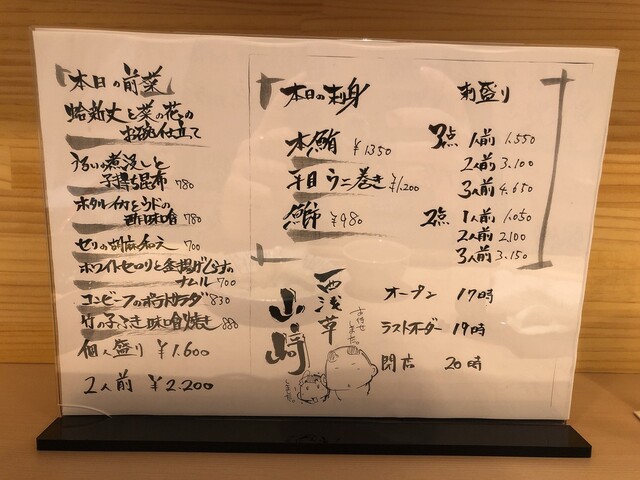 本日の前菜
蛤新丈と菜の花の
お椀仕立て
うるいの煮浸しと
子持ち昆布 780
ホタルイカとウドの
酢味噌 780
セリの胡麻和え 700
ホワイトセロリと釜揚げしらすの
ナムル 700
コンビーフのポテトサラダ 830
竹の子ふき味噌焼き 880
個人盛り ¥1.600
2人前 ¥2.200
本日の刺身
本鮪 ¥1350
平目ウニ巻き ¥1.200
鰤 ¥980
刺盛り
3点 1人前 1.550
2人前 3.100
3人前 4.650
2点 1人前 1.050
2人前 2.100
3人前 3.150
西浅草
山﨑
オープン 17時
ラストオーダー 19時
閉店 20時